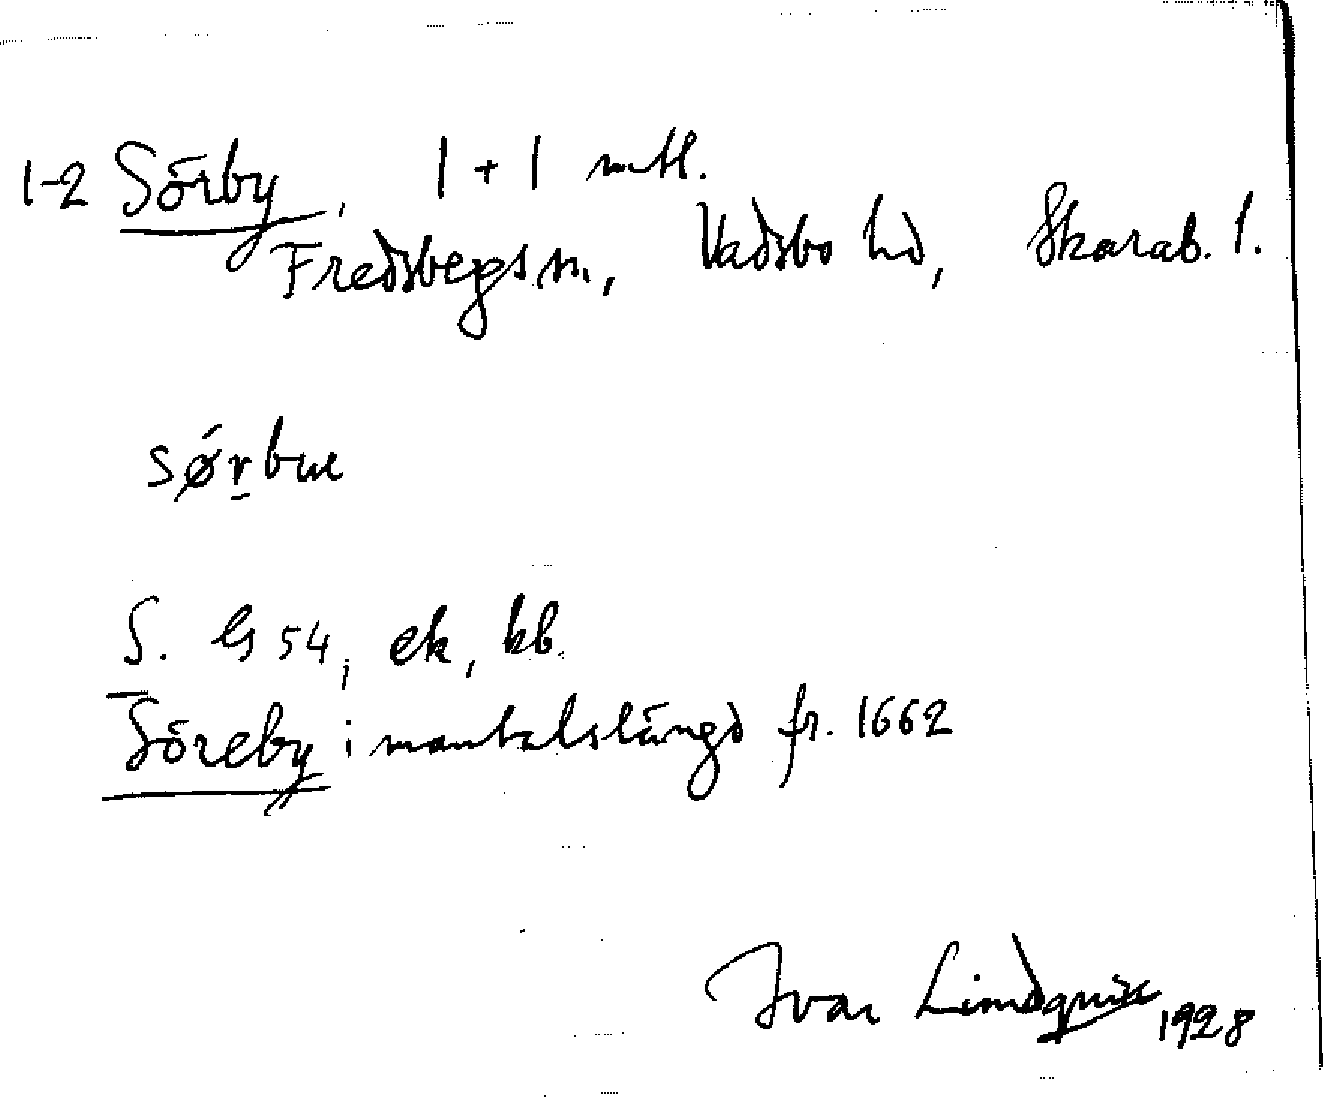 1-2 Sörby, 1 + 1 mtl.
Fredsbergs sn, Vadsbo hd, Skarab. l.
sørbue
S. GS 54, ek, kb.
Söreby i mantalslängd fr. 1662
Ivar Lindquist 1928